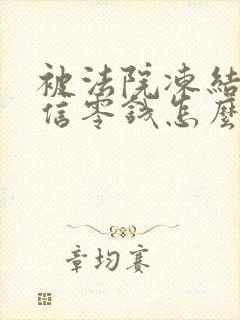 被法院凍結
信零錢怎麼
章均赛